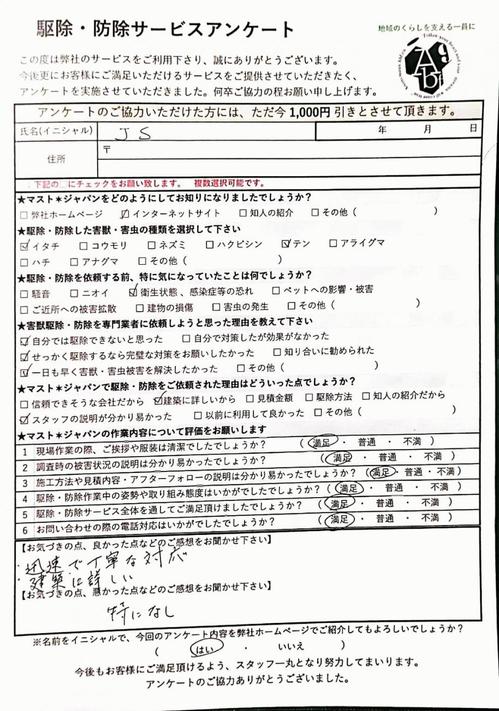 駆除・防除サービスアンケート
地域のくらしを支える一員に
この度は弊社のサービスをご利用下さり、誠にありがとうございます。
今後更にお客様にご満足いただけるサービスをご提供させていただきたく、
アンケートを実施させていただきました。何卒ご協力の程お願い申し上げます。
アンケートのご協力いただけた方には、ただ今1,000円引きとさせて頂きます。
氏名(イニシャル) J S 年 月 日
住所 〒
下記の□にチェックをお願い致します。 複数選択可能です。
★マスト＊ジャパンをどのようにしてお知りになりましたでしょうか？
□弊社ホームページ ☑インターネットサイト □知人の紹介 □その他（ ）
★駆除・防除した害獣・害虫の種類を選択して下さい
☑イタチ □コウモリ □ネズミ □ハクビシン ☑テン □アライグマ
□ハチ □アナグマ □その他（ ）
★駆除・防除を依頼する前、特に気になっていたことは何でしょうか？
□騒音 □ニオイ ☑衛生状態、感染症等の恐れ □ペットへの影響・被害
□ご近所への被害拡散 □建物の損傷 □害虫の発生 □その他（ ）
★害獣駆除・防除を専門業者に依頼しようと思った理由を教えて下さい
☑自分では駆除できないと思った □自分で対策したが効果がなかった
☑せっかく駆除するなら完璧な対策をお願いしたかった □知り合いに勧められた
☑一日も早く害獣・害虫被害を解決したかった □その他（ ）
★マスト＊ジャパンで駆除・防除をご依頼された理由はどういった点でしょうか？
□信頼できそうな会社だから ☑建築に詳しいから □見積金額 □駆除方法 □知人の紹介だから
☑スタッフの説明が分かり易かった □以前に利用して良かった □その他（ ）
★マスト＊ジャパンの作業内容について評価をお願いします
1 現場作業の際、ご挨拶や服装は清潔でしたでしょうか？ （ 満足 ・ 普通 ・ 不満 ）
2 調査時の被害状況の説明は分かり易かったでしょうか？ （ 満足 ・ 普通 ・ 不満 ）
3 施工方法や見積内容・アフターフォローの説明は分かり易かったでしょうか？（ 満足 ・ 普通 ・ 不満 ）
4 駆除・防除作業中の姿勢や取り組み態度はいかがでしたでしょうか？ （ 満足 ・ 普通 ・ 不満 ）
5 駆除・防除サービス全体を通してご満足頂けましたでしょうか？ （ 満足 ・ 普通 ・ 不満 ）
6 お問い合わせの際の電話対応はいかがでしたでしょうか？ （ 満足 ・ 普通 ・ 不満 ）
【お気づきの点、良かった点などのご感想をお聞かせ下さい】
・迅速で丁寧な対応
・建築に詳しい
【お気づきの点、悪かった点などのご感想をお聞かせ下さい】
特になし
※名前をイニシャルで、今回のアンケート内容を弊社ホームページでご紹介してもよろしいでしょうか？
（ はい ・ いいえ ）
今後もお客様にご満足頂けるよう、スタッフ一丸となり努力してまいります。
アンケートのご協力ありがとうございました。